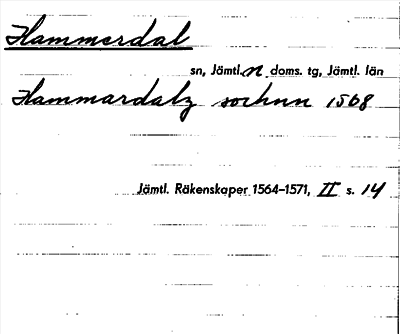 Hammerdal
sn, Jämtl. n doms. tg, Jämtl. län
Hammardalz sochnn 1568
Jämtl. Räkenskaper 1564–1571, II s. 14